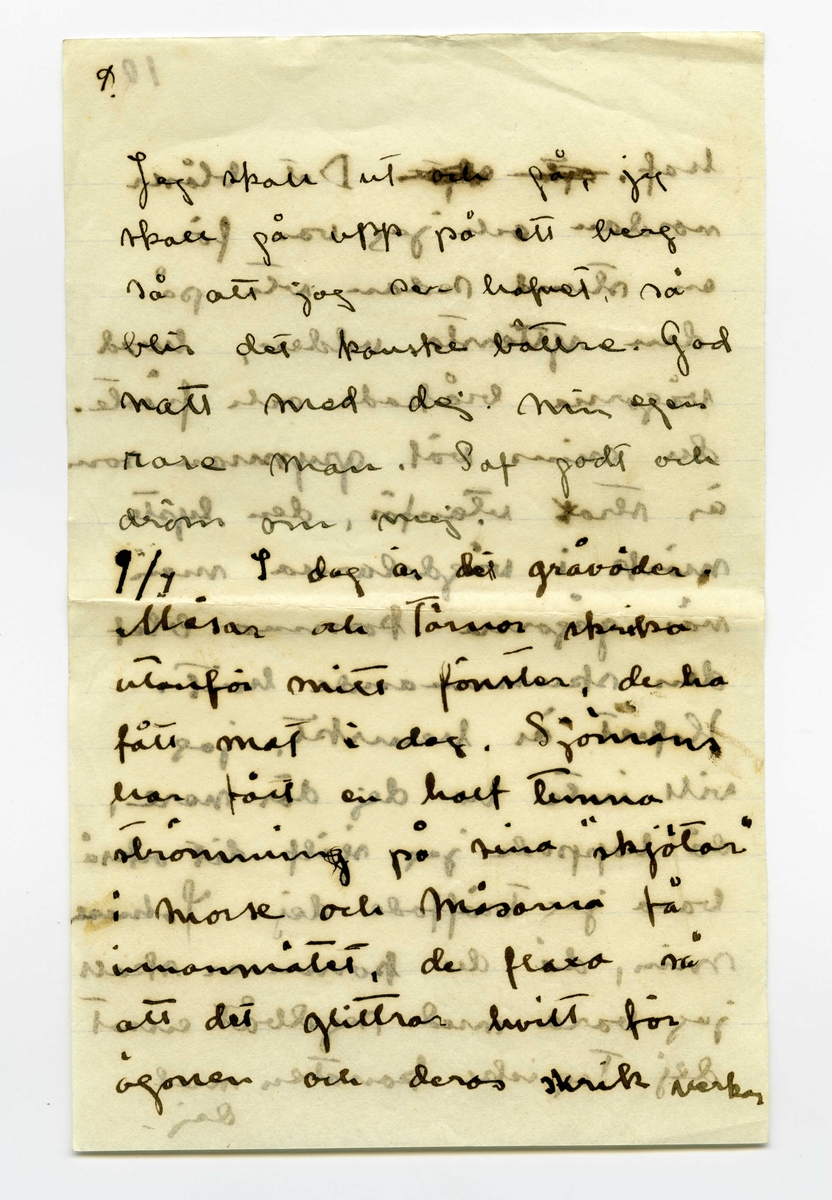 9.
Jag skall ut och gå, jag
skall gå upp på ett berg
så att jag ser hafvet, så
blir det kanske bättre. God
natt med dej. min egen
rare man. Sof godt och
dröm om mej.
9/7 I dag är det gråväder.
Måsar och Tärnor skrika
utanför mitt fönster, de ha
fått mat i dag. Sjömans
har fått en half tunna
strömming på sina "skjötar"
i morse och Måsarna få
innanmätet, de flaxa så
att det glittrar hvitt för
ögonen och deras skrik verkar